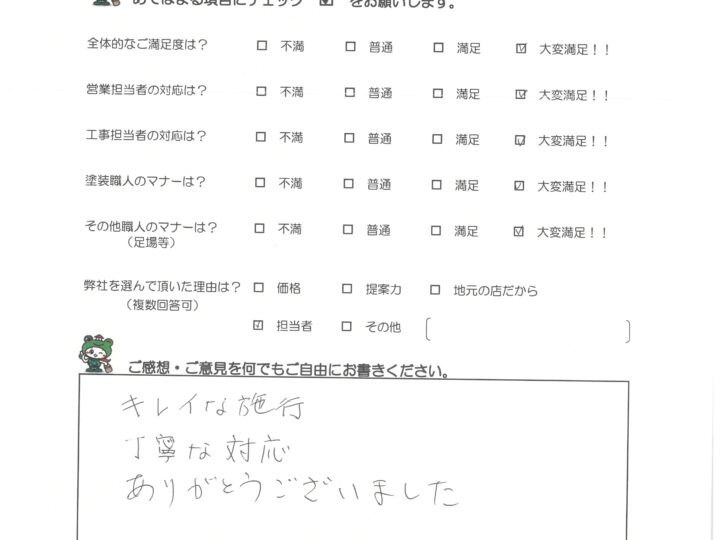 あてはまる項目にチェック ☑ をお願いします。
全体的なご満足度は? □ 不満 □ 普通 □ 満足 ☑ 大変満足!!
営業担当者の対応は? □ 不満 □ 普通 □ 満足 ☑ 大変満足!!
工事担当者の対応は? □ 不満 □ 普通 □ 満足 ☑ 大変満足!!
塗装職人のマナーは? □ 不満 □ 普通 □ 満足 ☑ 大変満足!!
その他職人のマナーは? □ 不満 □ 普通 □ 満足 ☑ 大変満足!!
(足場等)
弊社を選んで頂いた理由は? □ 価格 □ 提案力 □ 地元の店だから
(複数回答可)
☑ 担当者 □ その他
ご感想・ご意見を何でもご自由にお書きください。
キレイな施行
丁寧な対応
ありがとうございました